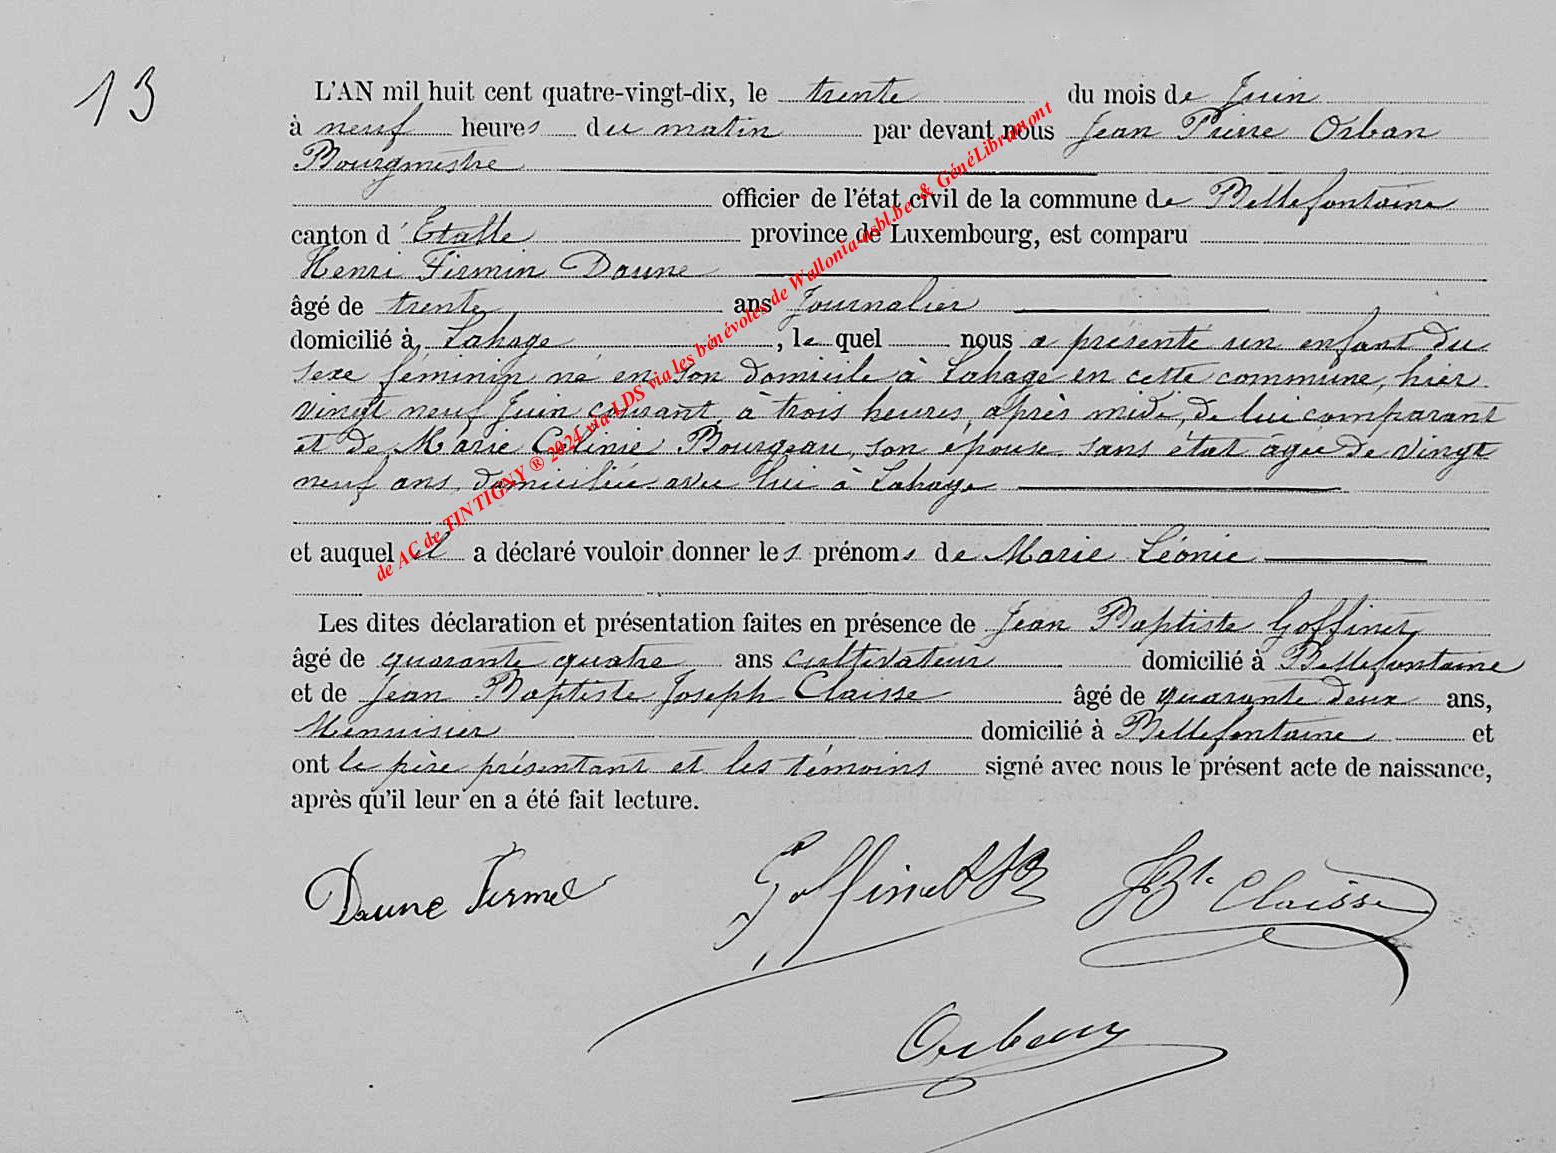 13
L'AN mil huit cent quatre-vingt-dix, le trente du mois de Juin
à neuf heures du matin par devant nous Jean Pierre Orban
Bourgmestre
officier de l'état civil de la commune de Bellefontaine
canton d'Etalle province de Luxembourg, est comparu
Henri Firmin Daune
âgé de trente ans Journalier
domicilié à Lahage, le quel nous a présenté un enfant du
sexe féminin né en son domicile à Lahage en cette commune, hier
vingt neuf Juin courant, à trois heures, après midi, de lui comparant
et de Marie Célinie Bourgeau, son épouse sans état âgée de vingt
neuf ans, domiciliée avec lui à Lahage
et auquel il a déclaré vouloir donner les prénoms de Marie Léonie
Les dites déclaration et présentation faites en présence de Jean Baptiste Goffinet
âgé de quarante quatre ans cultivateur domicilié à Bellefontaine
et de Jean Baptiste Joseph Claisse âgé de quarante deux ans,
Menuisier domicilié à Bellefontaine et
ont le père présentant et les témoins signé avec nous le présent acte de naissance,
après qu'il leur en a été fait lecture.
Daune Firmel Goffinet JB JBte Claisse
Orban
de AC de TINTIGNY ® 2024 via LDS via les bénévoles de Wallonia-asbl.be & GénéLibramont